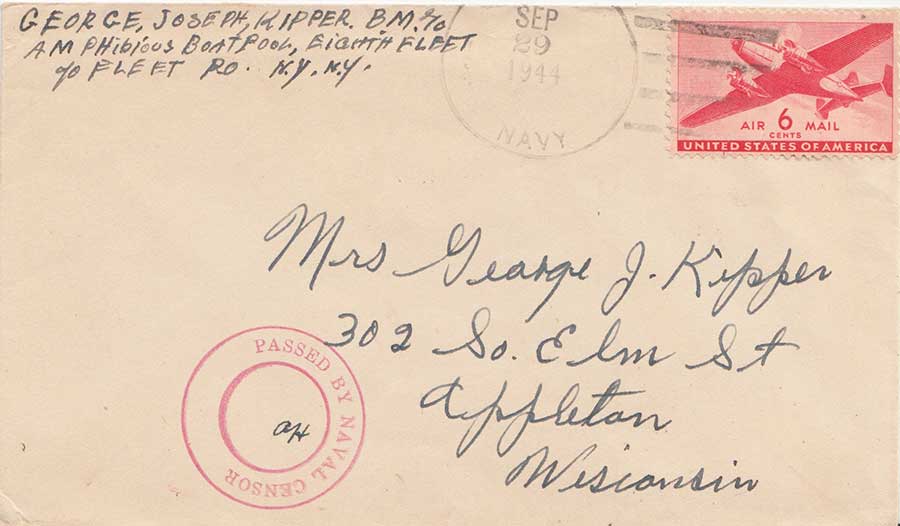 GEORGE, JOSEPH, KIPPER. B.M. %
AMPHibious BOATPOOL, EIGHTH FLEET
% FLEET P.O. N.Y, N.Y.
SEP
29
1944
NAVY
AIR 6 MAIL
CENTS
UNITED STATES OF AMERICA
Mrs George J. Kipper
302 So. Elm St
Appleton
Wisconsin
PASSED BY NAVAL CENSOR